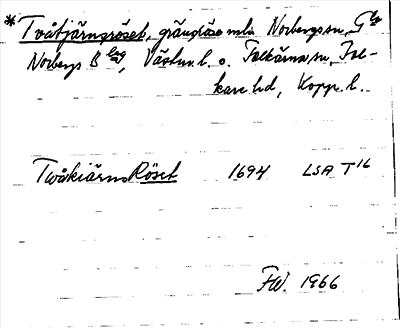 *Tvåtjärnsröset, gränsröse mla Norbergs sn, Gla
Norbergs Bslag, Västm. l. o. Folkärna sn, Fol-
kare hd, Kopp. l.
Twåkiärns Röset 1694 LSA T16
FW. 1966